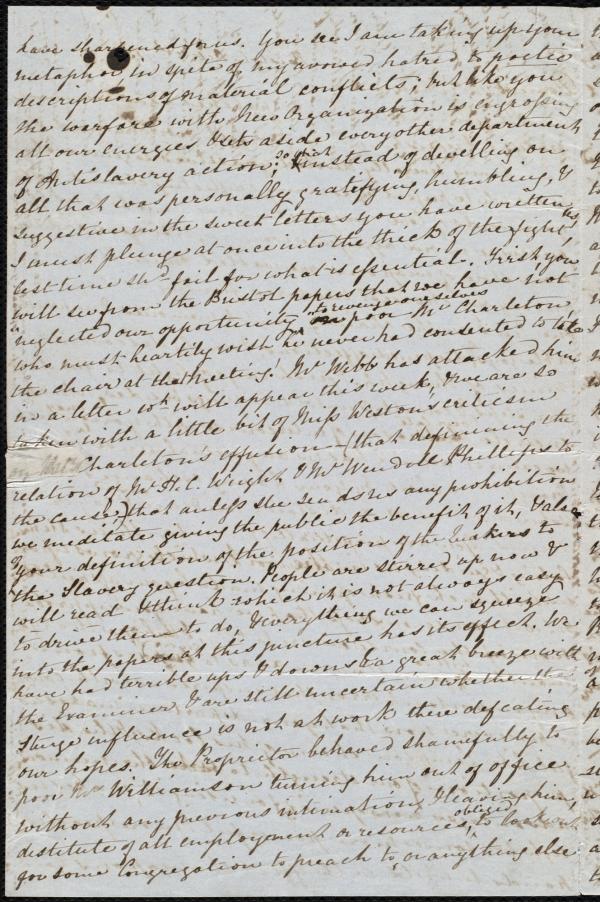 have sharpened for us. You see I am taking up your
metaphor in spite of my avowed hatred to poetic
descriptions of material conflicts, but like you
the warfare with New Organization is engrossing
all our energies & sets aside every other department
of Antislavery action; so that instead of dwelling on
all that was personally gratifying, humbling, &
suggestive in the sweet letters you have written us
I must plunge at once into the thick of the fight,
lest time shd fail for what is essential. First you
will see from the Bristol papers that we have not
neglected our opportunity to revenge ourselves
for poor Mr Charleton
who must heartily wish he never had consented to take
the chair at that meeting. Mr Webb has attacked him
in a letter wh will appear this week, & we are so
taken with a little bit of Miss Weston's criticism
on Mr Charleton's effusion—(that defining the
relation of Mr H. C. Wright & Mr Wendell Phillips to
the cause) that unless she sends us any prohibition
we meditate giving the public the benefit of it, & also
of your definition of the position of the Quakers to
the Slavery question. People are stirred up now &
will read & think which it is not always easy
to drive them to do, & everything we can squeeze
into the papers at this juncture has its effect. We
have had terrible ups & downs & a great breeze with
the Examiner & are still uncertain whether the
Sturge influence is not at work there defeating
our hopes. The Proprietor behaved shamefully to
poor Mr Williamson turning him out of office
without any previous intimation, & leaving him,
destitute of all employment or resources, obliged to look out
for some Congregation to preach to, or anything else